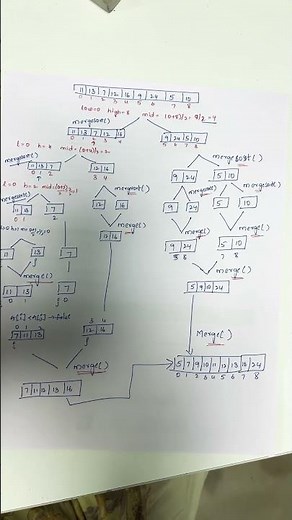 11 13 7 12 16 9 24 5 10
0 1 2 3 4 5 6 7 8
low=0 high=8 mid = (0+8)/2 = 8/2 = 4
mergesort()
11 13 7 12 16 9 24 5 10
0 1 2 3 4
l=0 h=4 mid=(0+4)/2=2
mergesort() mergesort()
11 13 7 12 16 9 24 5 10
0 1 2 3 4
mergesort() mergesort()
11 13 7 12 16 9 24 5 10
0 1 2
merge() merge() merge()
12 16 9 24 5 10
7 8
11 13 7
merge()
merge()
11 13 7 5 9 10 24
0 1
3 4
7 11 13 12 16
Merge()
merge()
7 11 12 13 16
5 7 9 10 11 12 13 16 24
0 1 2 3 4 5 6 7 8